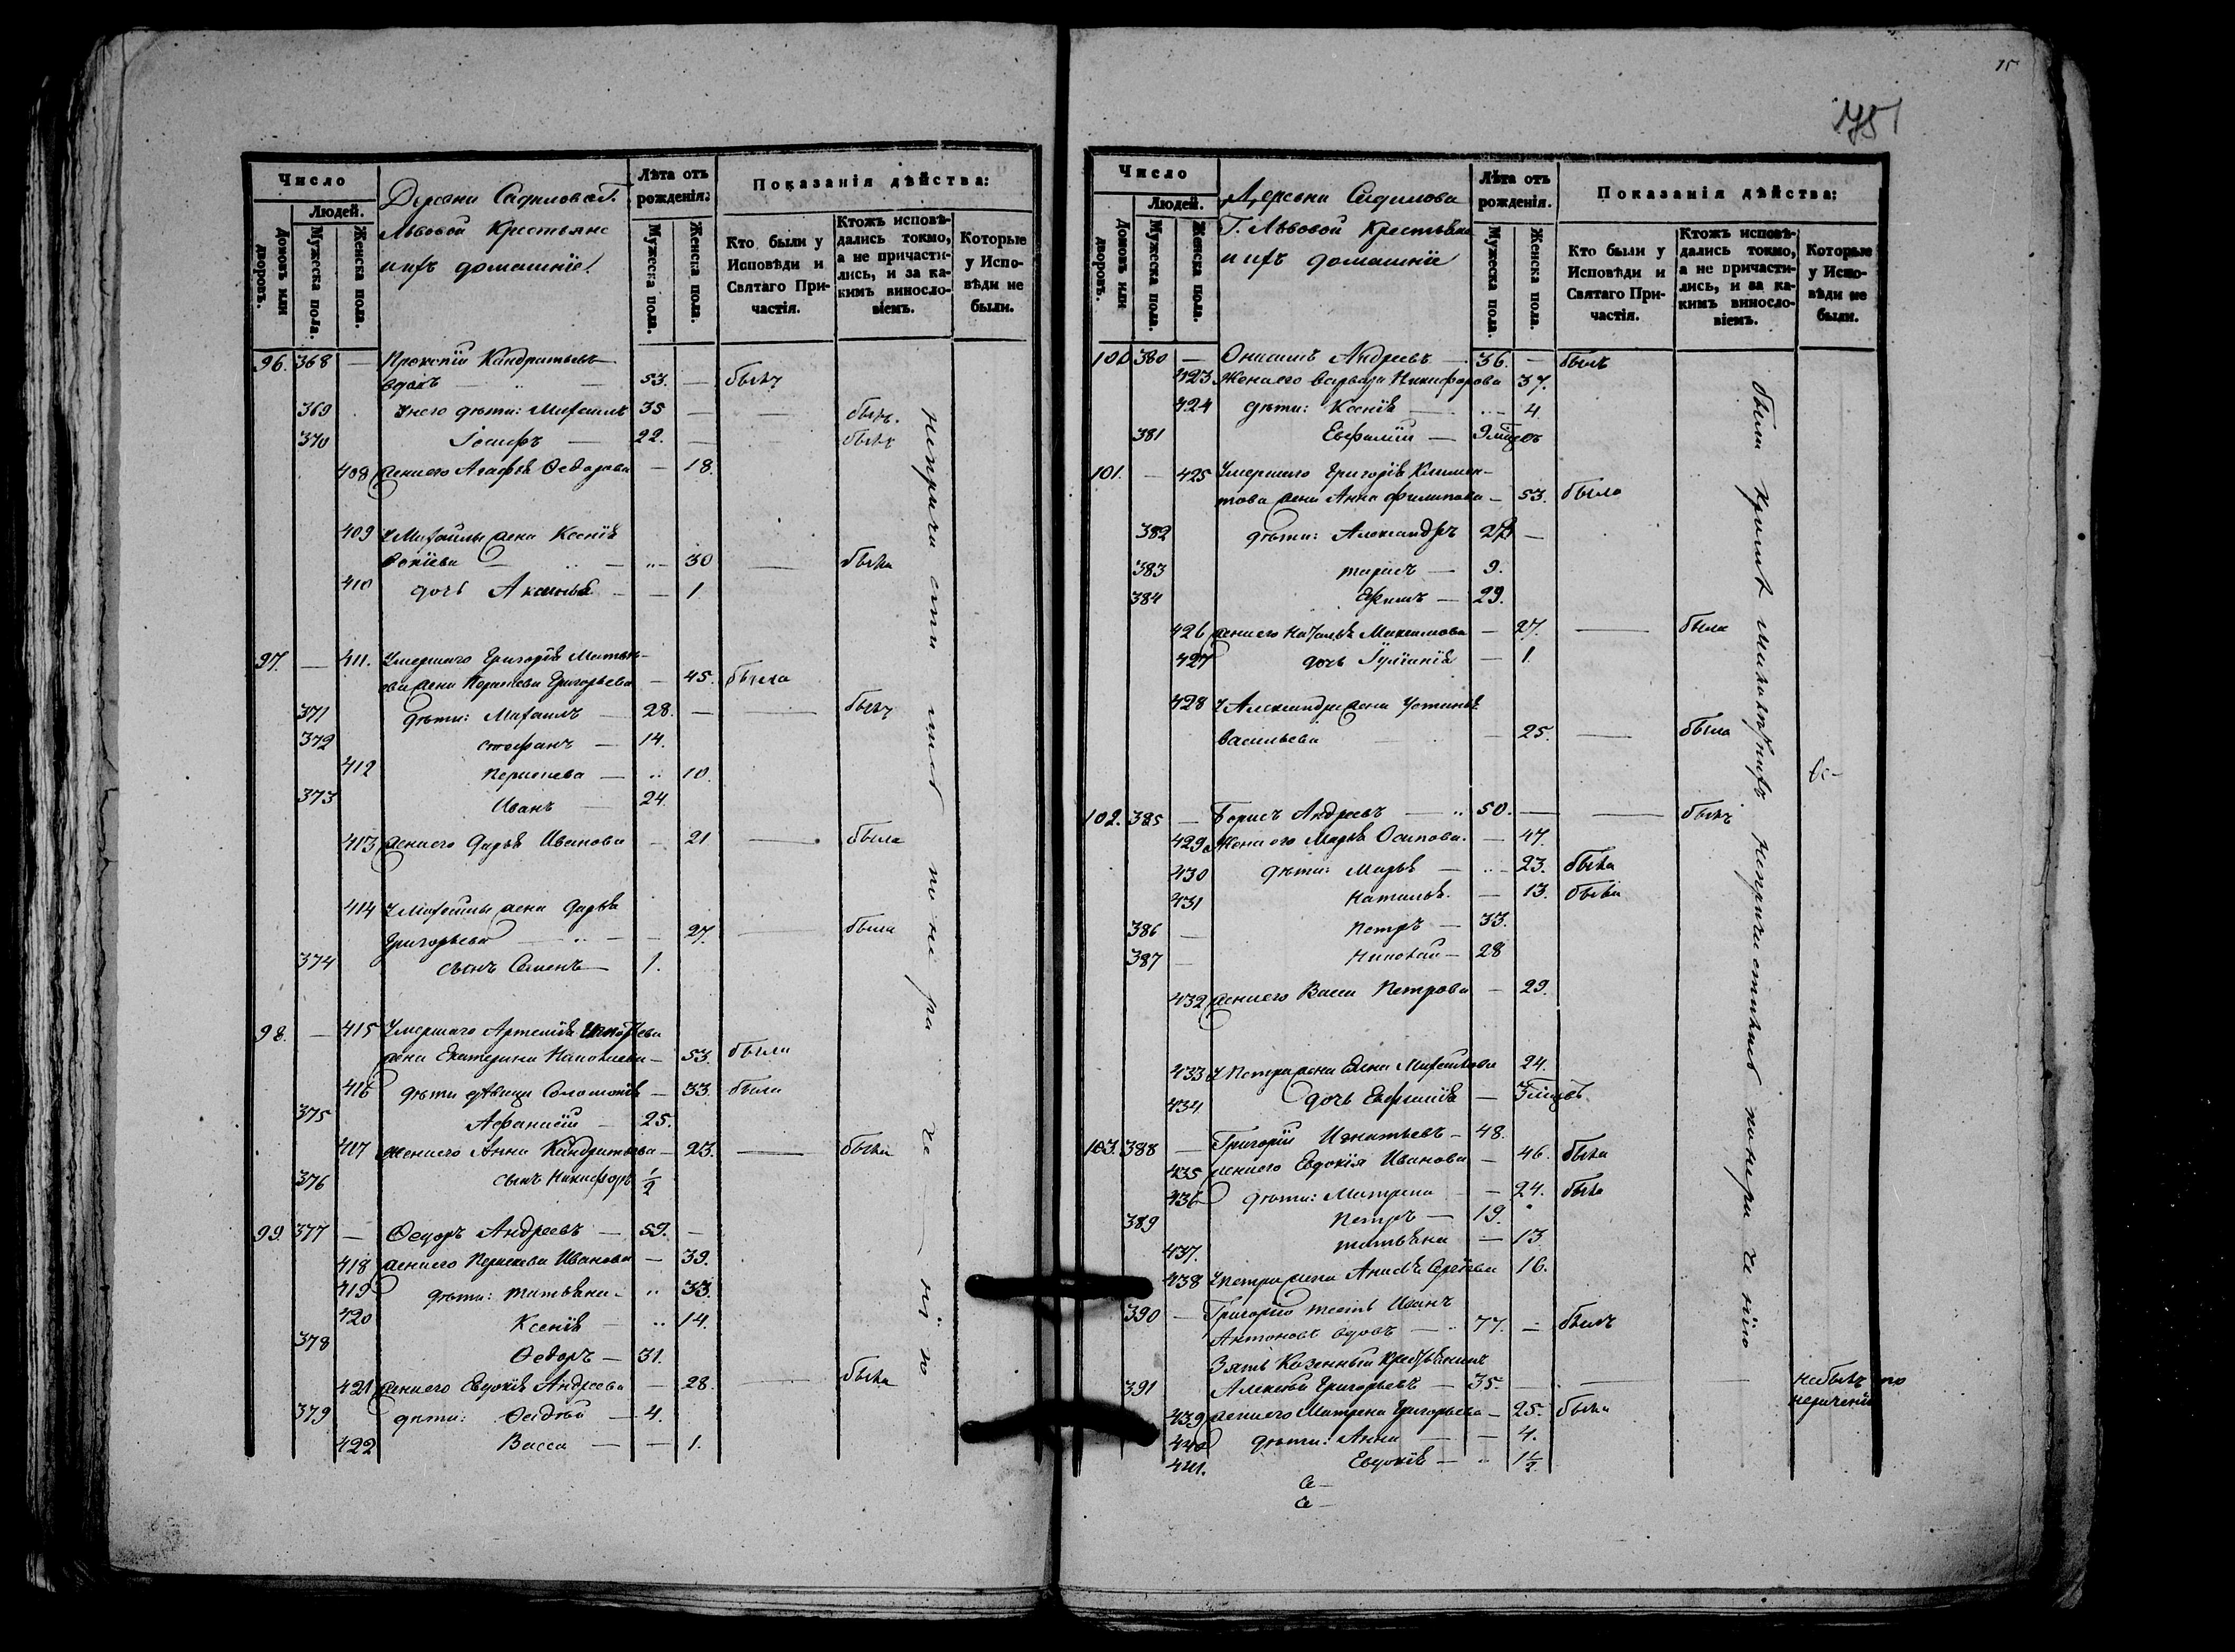 Число
Людей.
Домовъ или дворовъ.
Мужеска пола.
Женска пола.
Деревни Садилова Г.
Львовой Крестьяне
и ихъ домашніе.
Лѣта отъ рожденія:
Мужеска пола.
Женска пола.
Показанія дѣйства:
Кто были у Исповѣди и Святаго Причастія.
Ктожъ исповѣдались токмо, а не причастились, и за какимъ винословіемъ.
Которые у Исповѣди не были.
96. 368 — Прокопій Кандратьевъ
вдовъ — 53. — былъ
369 У него дѣти: Михаилъ 35 — — былъ.
370 Іосифъ — 22. — былъ
408 жена его Агафья Ѳедорова — 18.
409 У Михаилы жена Ксенія
— 30 — была
410 дочь Аксинья — — 1
97. — 411. Умершаго Григорія
жена Параскева Григорьева — 45. была
371 дѣти: Михаилъ — 28. — — былъ
372 Стефанъ — 14.
412 Параскева — 10.
373 Иванъ — 24.
413 жена его Дарья Иванова — 21 — была
414 У Михаилы жена Дарья
Григорьева — 27. — была
374 сынъ Семенъ — 1.
98. — 415 Умершаго Артемія
жена Екатерина — 53. была
416 дѣти дѣвица Соломонія — 33. была
375 Афанасій — 25.
417 жена его Анна Кандратьева — 23. — была
376 сынъ Никифоръ 1/2
99. 377 — Ѳедоръ Андреевъ — 59. —
418 жена его Параскева Иванова — 39.
419 дѣти: Татьяна — 33.
420 Ксенія — 14.
378 Ѳедоръ — 31.
421 жена его Евдокія Андреева — 28. — была
379 дѣти: — 4.
422 Васса — — 1.
15
175
Число
Людей.
Домовъ или дворовъ.
Мужеска пола.
Женска пола.
Деревни Садилова
Г. Львовой Крестьяне
и ихъ домашніе
Лѣта отъ рожденія.
Мужеска пола.
Женска пола.
Показанія дѣйства;
Кто были у Исповѣди и Святаго Причастія.
Ктожъ исповѣдались токмо, а не причастились, и за какимъ винословіемъ.
Которые у Исповѣди не были.
100. 380 — Онисимъ Андреевъ — 36. — былъ
423 Жена его Варвара Никифорова 37.
424 дѣти: Ксенія — 4.
381 Евфимій — 9 мѣцовъ
101. — 425 Умершаго Григорія Климен-
това жена Анна Филипова — 53. была
382 дѣти: Александръ —
383 Тарасъ — 9.
384 Ефимъ — 29.
426 жена его Наталья Максимова — 27. — была
427 дочь Іуліанія — 1.
428 У Александра жена Устинья
Васильева — 25. — была
102. 385 — Борисъ Андреевъ — 50. — — былъ
429 Жена его Марья Осипова. — 47.
430 дѣти: Марья — 23. была
431 Наталья. — 13. была
386 — Петръ — 33.
387 — Николай — 28
432 жена его Васса Петрова — 29.
433 У Петра жена Елена Михайлова 24.
434 дочь Евфимія — 3 мѣцовъ.
103. 388 — Григорій Игнатьевъ — 48.
435 жена его Евдокія Иванова — 46. была
436 дѣти: Матрена — 24. была
389 Петръ — 19.
437. Татьяна — 13
438 У Петра жена Анисья Сергѣева 16.
390 — Григорію тесть Иванъ
Антоновъ вдовъ — 77. — былъ
Зять Казенный крестьянинъ
391 Алексѣй Григорьевъ — 35. — — не былъ по
нераченію
439 жена его Матрена Григорьева — 25. была
440 дѣти: Анна — — 4.
441. Евдокія — 1 1/2